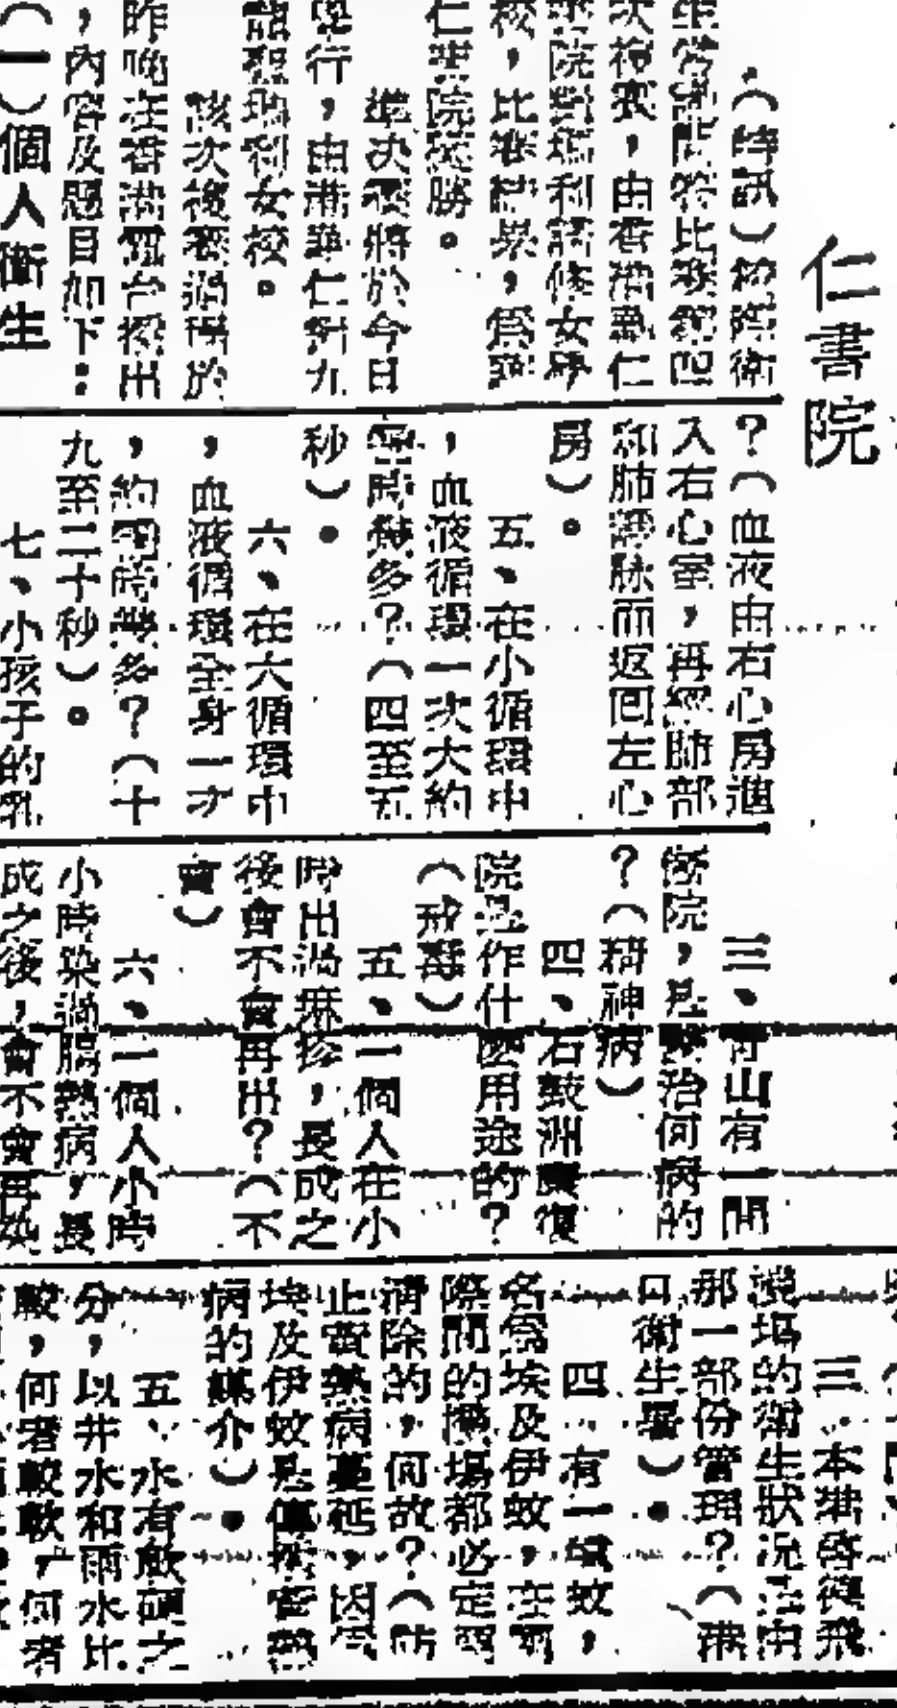 仁書院
(特訊)校際衛
生常識問答比賽第四
次複賽,由香港華仁
書院對瑪利諾修女學
校,比賽結果,為華
仁書院獲勝。
準決賽將於今日
舉行,由港華仁對九
龍聖瑪利女校。
該次複賽過程於
昨晚在香港電台播出
,內容及題目如下:
(一)個人衞生
?(血液由右心房進
入右心室,再經肺部
和肺靜脉而返回左心
房)。
五、在小循環中
,血液循環一次大約
需時幾多?(四至五
秒)。
六、在六循環中
,血液循環全身一才
,約需時幾多?(十
九至二十秒)。
七、小孩子的乳
三、青山有一間
院,是醫治何病的
?(精神病)
四、石鼓洲康復
院是作什麽用途的?
(戒毒)
五、一個人在小
時出過麻疹,長成之
後會不會再出?(不
會)
六、一個人小時
小時染過腸熱病,長
成之後,會不會再染
三、本港啓德飛
機場的衛生狀況是由
那一部份管理?(港
口衛生署)。
四、有一種蚊,
名為埃及伊蚊,在國
際間的機場都必定要
清除的,何故?(防
止黃熱病蔓延,因為
埃及伊蚊是傳播黃熱
病的媒介)。
五、水有軟硬之
分,以井水和雨水比
較,何者較軟,何者